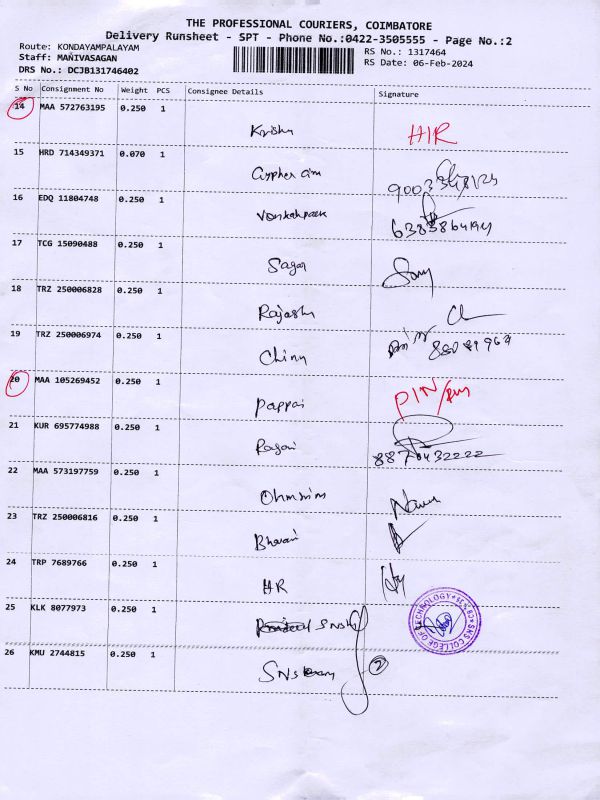 THE PROFESSIONAL COURIERS, COIMBATORE
Delivery Runsheet - SPT - Phone No.:0422-3505555 - Page No.:2
Route: KONDAYAMPALAYAM
Staff: MANIVASAGAN
DRS No.: DCJB131746402
RS No.: 1317464
RS Date: 06-Feb-2024
S No Consignment No Weight PCS Consignee Details Signature
14 MAA 572763195 0.250 1
Krishn HIR
15 HRD 714349371 0.070 1
Cypher cim
16 EDQ 11804748 0.250 1
6383864194
17 TCG 15090488 0.250 1
Sagar Sony
18 TRZ 250006828 0.250 1
Rajash
19 TRZ 250006974 0.250 1
Chinn
20 MAA 105269452 0.250 1
Pappai PIN/
21 KUR 695774988 0.250 1
Ragavi 8870432222
22 MAA 573197759 0.250 1
23 TRZ 250006816 0.250 1
Bhavani
24 TRP 7689766 0.250 1
HR
25 KLK 8077973 0.250 1
SNS COLLEGE OF TECHNOLOGY
26 KMU 2744815 0.250 1
SNS 2